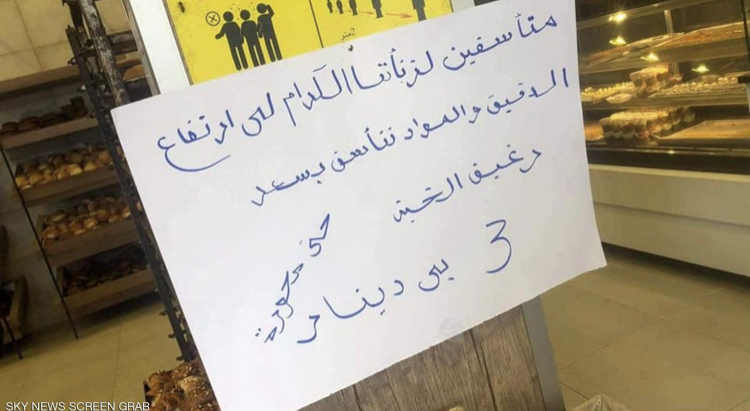 متأسفين لزبأننا الكرام لى ارتفاع
الدقيق والمواد نتأسف بسعر
رغيف الخبز
3 بى دينار
SKY NEWS SCREEN GRAB